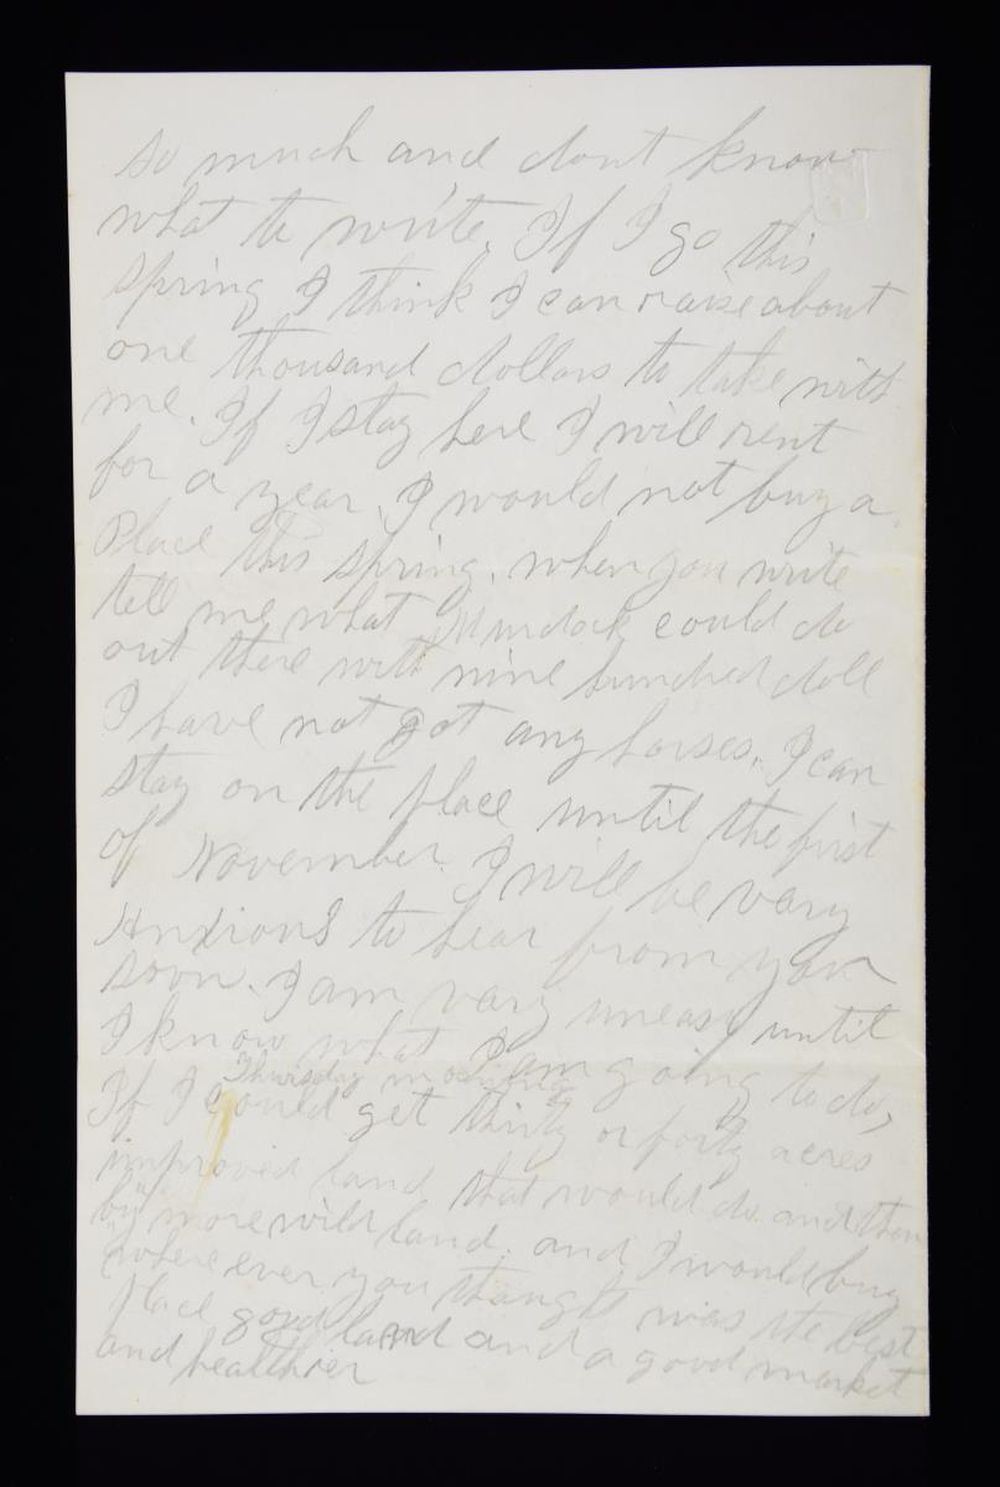 so much and dont know
what to write. If I go this
spring I think I can raise about
one thousand dollars to take with
me. If I stay here I will rent
for a year. I would not buy a
Place this spring. when you write
tell me what Murdock could do
out there with nine hundred doll
I have not got any horses. I can
stay on the place until the first
of November. I will be vary
Anxious to hear from you
soon. I am vary uneasy until
I know what I am going to do,
Thursday morning
If I could get thirty or forty acres
improved land that would do and then
by more wild land. and I would buy
where ever you thought was the best
place good land and a good market
and healthier